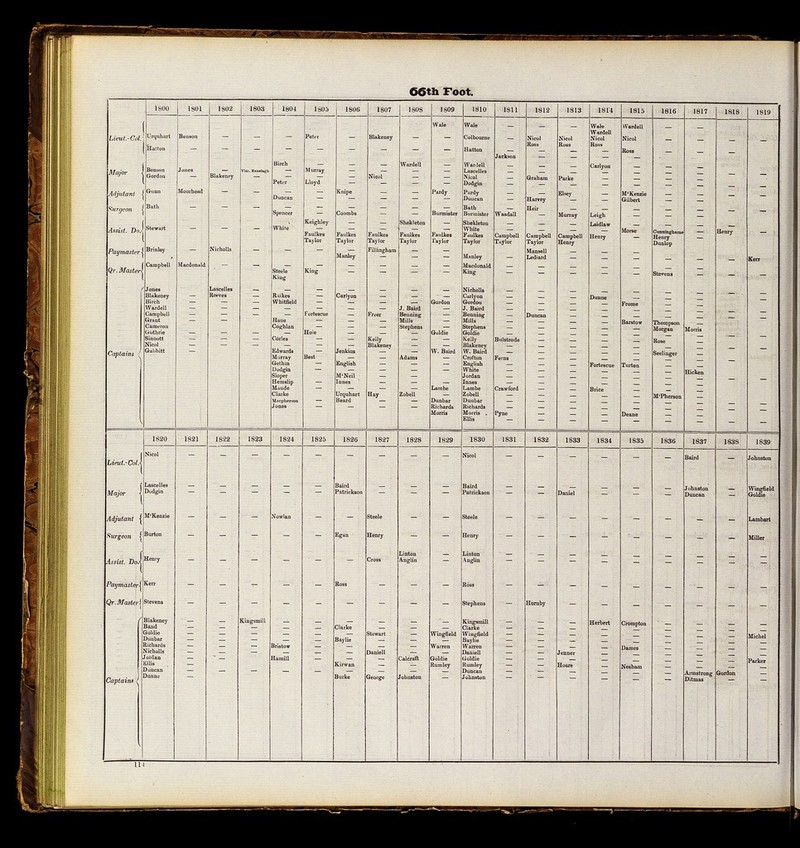 66th Foot.
1800 1801 1802 1803 1804 1805 1806 1807 1808 1809 1810 1811 1812 1813 1814 1815 1816 1817 1818 1819
Wale Wale — — — Wale Wardell — — — —
Wardell
Lieut.-Col. Urquhart Benson — — — Peter — Blakeney — — Colbourne — Nicol Nicol Nicol Nicol — — — —
Ross Ross Ross
Hatton — — — — — — — — — Hatton — — — — Ross — — — —
Jackson
Birch Wardell — Wardell — — — Carlyon — — — — —
Major Benson Jones — — Murray — — — — Lascelles — — — — — — — — —
Gordon — Blakeney — — — — Nicol — — Nicol — Graham Parke — — — — — —
Peter Lloyd Dodgin
Adjutant Gunn Moorhead — — — — Knipe — — Purdy Purdy — — Elsey — M'Kenzie — — — —
Duncan Duncan Harvey Gilbert
Surgeon Bath — — — — — — — — — Bath — Heir — — — — — — —
Spencer — Coombs — — Burmister Burmister Wasdall — Murray Leigh — — — — —
Assist. Do. Stewart — — — Keighley — — Shekleton — Shekleton — — — Laidlaw — — — — —
White — — — — White — — — — Morse Cunninghame — Henry —
Faulkes Faulkes Faulkes Faulkes Faulkes Faulkes Campbell Campbell Campbell Henry — Henry
Taylor Taylor Taylor Taylor Taylor Taylor Taylor Taylor Henry Dunlop
Paymaster Brinley — Nicholls — — — — Fillingham — — — — Mansell — — — — — — —
Manley — — — Manley — Lediard — — — — — — Kerr
Qr. Master Campbell Macdonald — — — — — — — — Macdonald — — — — — — — — —
Steele King — — — — King — — — — — Stevens — — —
King
Captains Jones Lascelles — — — — — — — Nicholls — — — — — — — — —
Blakeney — Reeves — Raikes — Carlyon — — — Carlyon — — — Dunne — — — — —
Birch — — — Whitfield — — — — Gordon Gordon — — — — Freme — — — —
Wardell — — — — — — — J. Baird — J. Baird — — — — — — — — —
Campbell — — — — Fortescue — Freer Benning — Benning — Duncan — — — — — — —
Grant — — — Hane — — — Mills — Mills — — — — Barstow Thompson — — —
Cameron — — — Coghlan — — — Stephens — Stephens — — — — — Morgan Morris — —
Guthrie — — — — Hole — — — Goldie Goldie — — — — — — — — —
Sinnott — — — Corles — — Kelly — — Kelly Bulstrode — — — — Rose — — —
Nicol — — — — — — Blakeney — — Blakeney — — — — — — — — —
Gubbitt — — — Edwards — Jenkins — — W. Baird W. Baird — — — — — Seelinger — — —
Murray Best — — Adams — Crofton Ferns — — — — — — — —
Gethin — English — — — English — — — Fortescue Turton — — — —
Dodgin — — — — — White — — — — — — Hicken — —
Sloper — M'Neil — — — Jordan — — — — — — — — —
Hemslip — Innes — — — Innes — — — — — — — — —
Maude — — — — Lambe Lambe Crawford — — Brice — — — — —
Clarke — Urquhart Hay Zobell — Zobell — — — — — M'Pherson — — —
Macpherson — Beard — — Dunbar Dunbar — — — — — — — — —
Jones — — — — Richards Richards — — — — — — — — —
Morris Morris Pyne — — — Deane — — — —
Ellis — — — — — — — — —
1820 1821 1822 1823 1824 1825 1826 1827 1828 1829 1830 1831 1832 1833 1834 1835 1836 1837 1838 1839
Lieut.-Col. Nicol — — — — — — — — — Nicol — — — — — — Baird — Johnston
Major Lascelles — — — — — Baird — — — Baird — — — — — — Johnston — Wingfield
Dodgin — — — — — Patrickson — — — Patrickson — — Daniel — — — Duncan — Goldie
Adjutant M'Kenzie — — — Nowlan — — Steele — — Steele — — — — — — — — Lambart
Surgeon Burton — — — — — Egan Henry — — Henry — — — — — — — — Miller
Assist. Do. Henry — — — — — — Linton — Linton — — — — — — — — —
Cross Anglin — Anglin — — — — — — — — —
Paymaster Kerr — — — — — Ross — — — Ross — — — — — — — — —
Qr. Master Stevens — — — — — — — — — Stephens — Hornby — — — — — — —
Captains Blakeney — — Kingsmill — — — — — — Kingsmill — — — Herbert Crompton — — — —
Baird — — — — — Clarke — — — Clarke — — — — — — — — —
Goldie — — — — — — Stewart — Wingfield Wingfield — — — — — — — — Michel
Dunbar — — — — — Baylie — — — Baylie — — — — — — — — —
Richards — — — Bristow — — — — Warren Warren — — — — Dames — — — —
Nicholls — — — — — — Daniell — — Daniell — — Jenner — — — — — —
Jordan — — — Hamill — — — Calcraft Goldie Goldie — — — — — — — — Parker
Ellis — — — — — Kirwan — — Rumley Rumley — — Hoare — Nesham — — — —
Duncan — — — — — — — — — Duncan — — — — — — Armstrong Gordon —
Dunne — — — — — Burke George Johnston — Johnston — — — — — — Ditmas — —